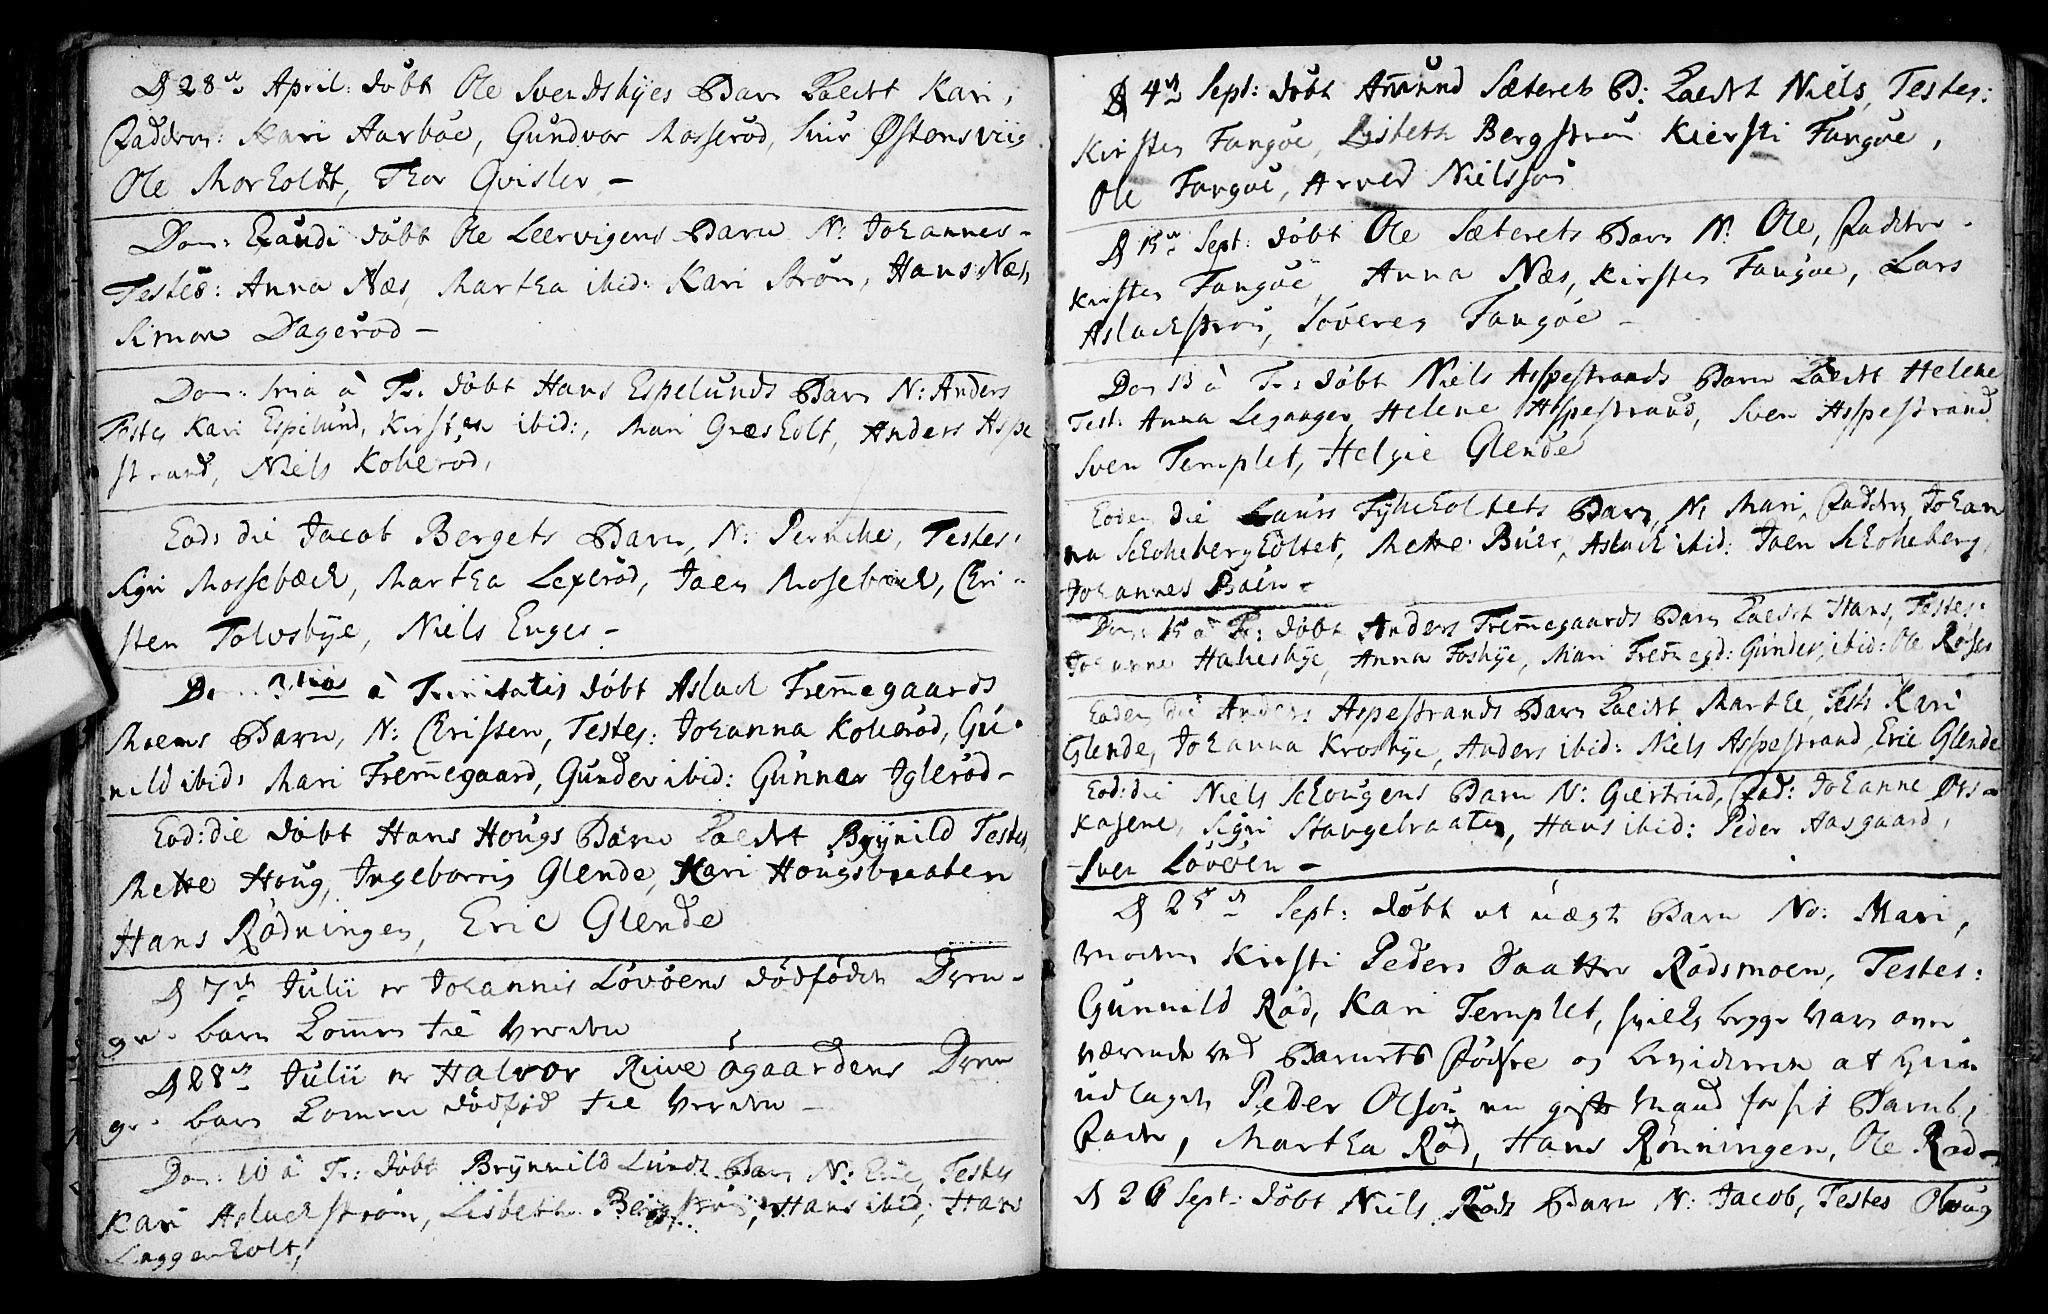 D 28de April: døbt Ole Svendsbyes Barn kaldt Kari,
Faddrer: Kari Aarbøe, Gundvor Mosserød, Siur Østensviig
Ole Morholdt, Thor Qvisler –
Dom: Exaudi døbt Ole Leervigens Barn N: Johannes –
Testes: Anna Næs, Martha ibid: Kari Strøm, Hans Næs,
Simon Dagerød –
Dom: 1ma à Tr: døbt Hans Espelunds Barn N: Anders
Testes Kari Espelund, Kirsten ibid:, Mari Græsholt, Anders Aspe
strand, Niels Kokerød,
Eod: die Jacob Bergets Barn, N: Pernike, Testes:
Sigri Mossebæck, Martha Lexerød, Joen Mosebæck, Chri-
sten Tolvsbye, Niels Enges –
Dom: 3tia à Trinitatis døbt Aslack Fremegaards
Moens Barn, N: Christen, Testes: Johanna Kokerød, Gu-
nild ibid: Mari Fremegaard, Gunder ibid: Gunnar Iglerød –
Eod: die døbt Hans Hougs Barn kaldt Brynild Testes,
Mette Houg, Ingeborrig Glende, Kari Hougsbraaten
Hans Rødningen, Eric Glende
D 7de Julii er Johannis Løvøens dødfødde Dren-
ge-barn kommen til Verden
D 28de Julii er Halvor Riiveøgaardens Dren
ge-barn kommen dødfød til Verden –
Dom: 10 à Tr: døbt Brynnild Lunds Barn N: Eric, Testes
Kari Aslackstrøm, Lisbeth Bergstrøm, Hans ibid, Hans
Laggenholt,
D 4de Sept: døbt Amund Sæterets B: kaldt Niels, Testes:
Kirsten Tangøe, Lisbeth Bergstrøm Kiersti Tangøe,
Ole Tangøe, Arved Nielssøn
D 15de Sept: døbt Ole Sæterets Barn N: Ole, Faddre –
Kirsten Tangøe, Anna Næs, Kirsten Tangøe, Lars
Aslackstrøm, Søveren Tangøe –
Dom 13 à Tr: døbt Niels Aspestrands Barn kaldt Helene
Test: Anna Leganger, Helene Aspestrand, Sven Aspestrand
Sven Templet, Helgie Glende
Eodem die Laurs Tykeholtets Barn, N: Mari, Faddrer, Johan
na Schokebergholtet, Mette Buer, Aslack ibid: Joen Schokeberg,
Johannes Baen –
Dom: 15 à Tr: døbt Anders Fremegaards Barn kaldet Hans, Testes:
Johanne Hakesbye, Anna Fosbye, Mari Fremegd: Gunder, ibid: Ole Røses
Eodem die Anders Aspestrands Barn kaldt Marthe, Tests Kari
Glende, Johanna Krosbye, Anders ibid: Niels Aspestrand, Eric Glende
Eod: die Niels Schougens Barn N: Giertrud, Fad: Johanne Ørs –
kasene, Sigri Stangebraaten, Hans ibid: Peder Aasgaard,
Sven Løvøen –
D 25de Sept: døbt et uægt Barn No: Mari,
Moderen Kirsti Peders Daatter Rødsmoen, Testes:
Gunnild Rød, Kari Templet, hvilke begge var over
værende ved Barnets Fødsel og bevidnede at hun
udlagde Peder Olsøn en gift Mand for sit Barns,
Fader, Martha Rød, Hans Rønningen, Ole Rød –
D 26 Sept: døbt Niels Røds Barn N: Jacob, Testes Oloug